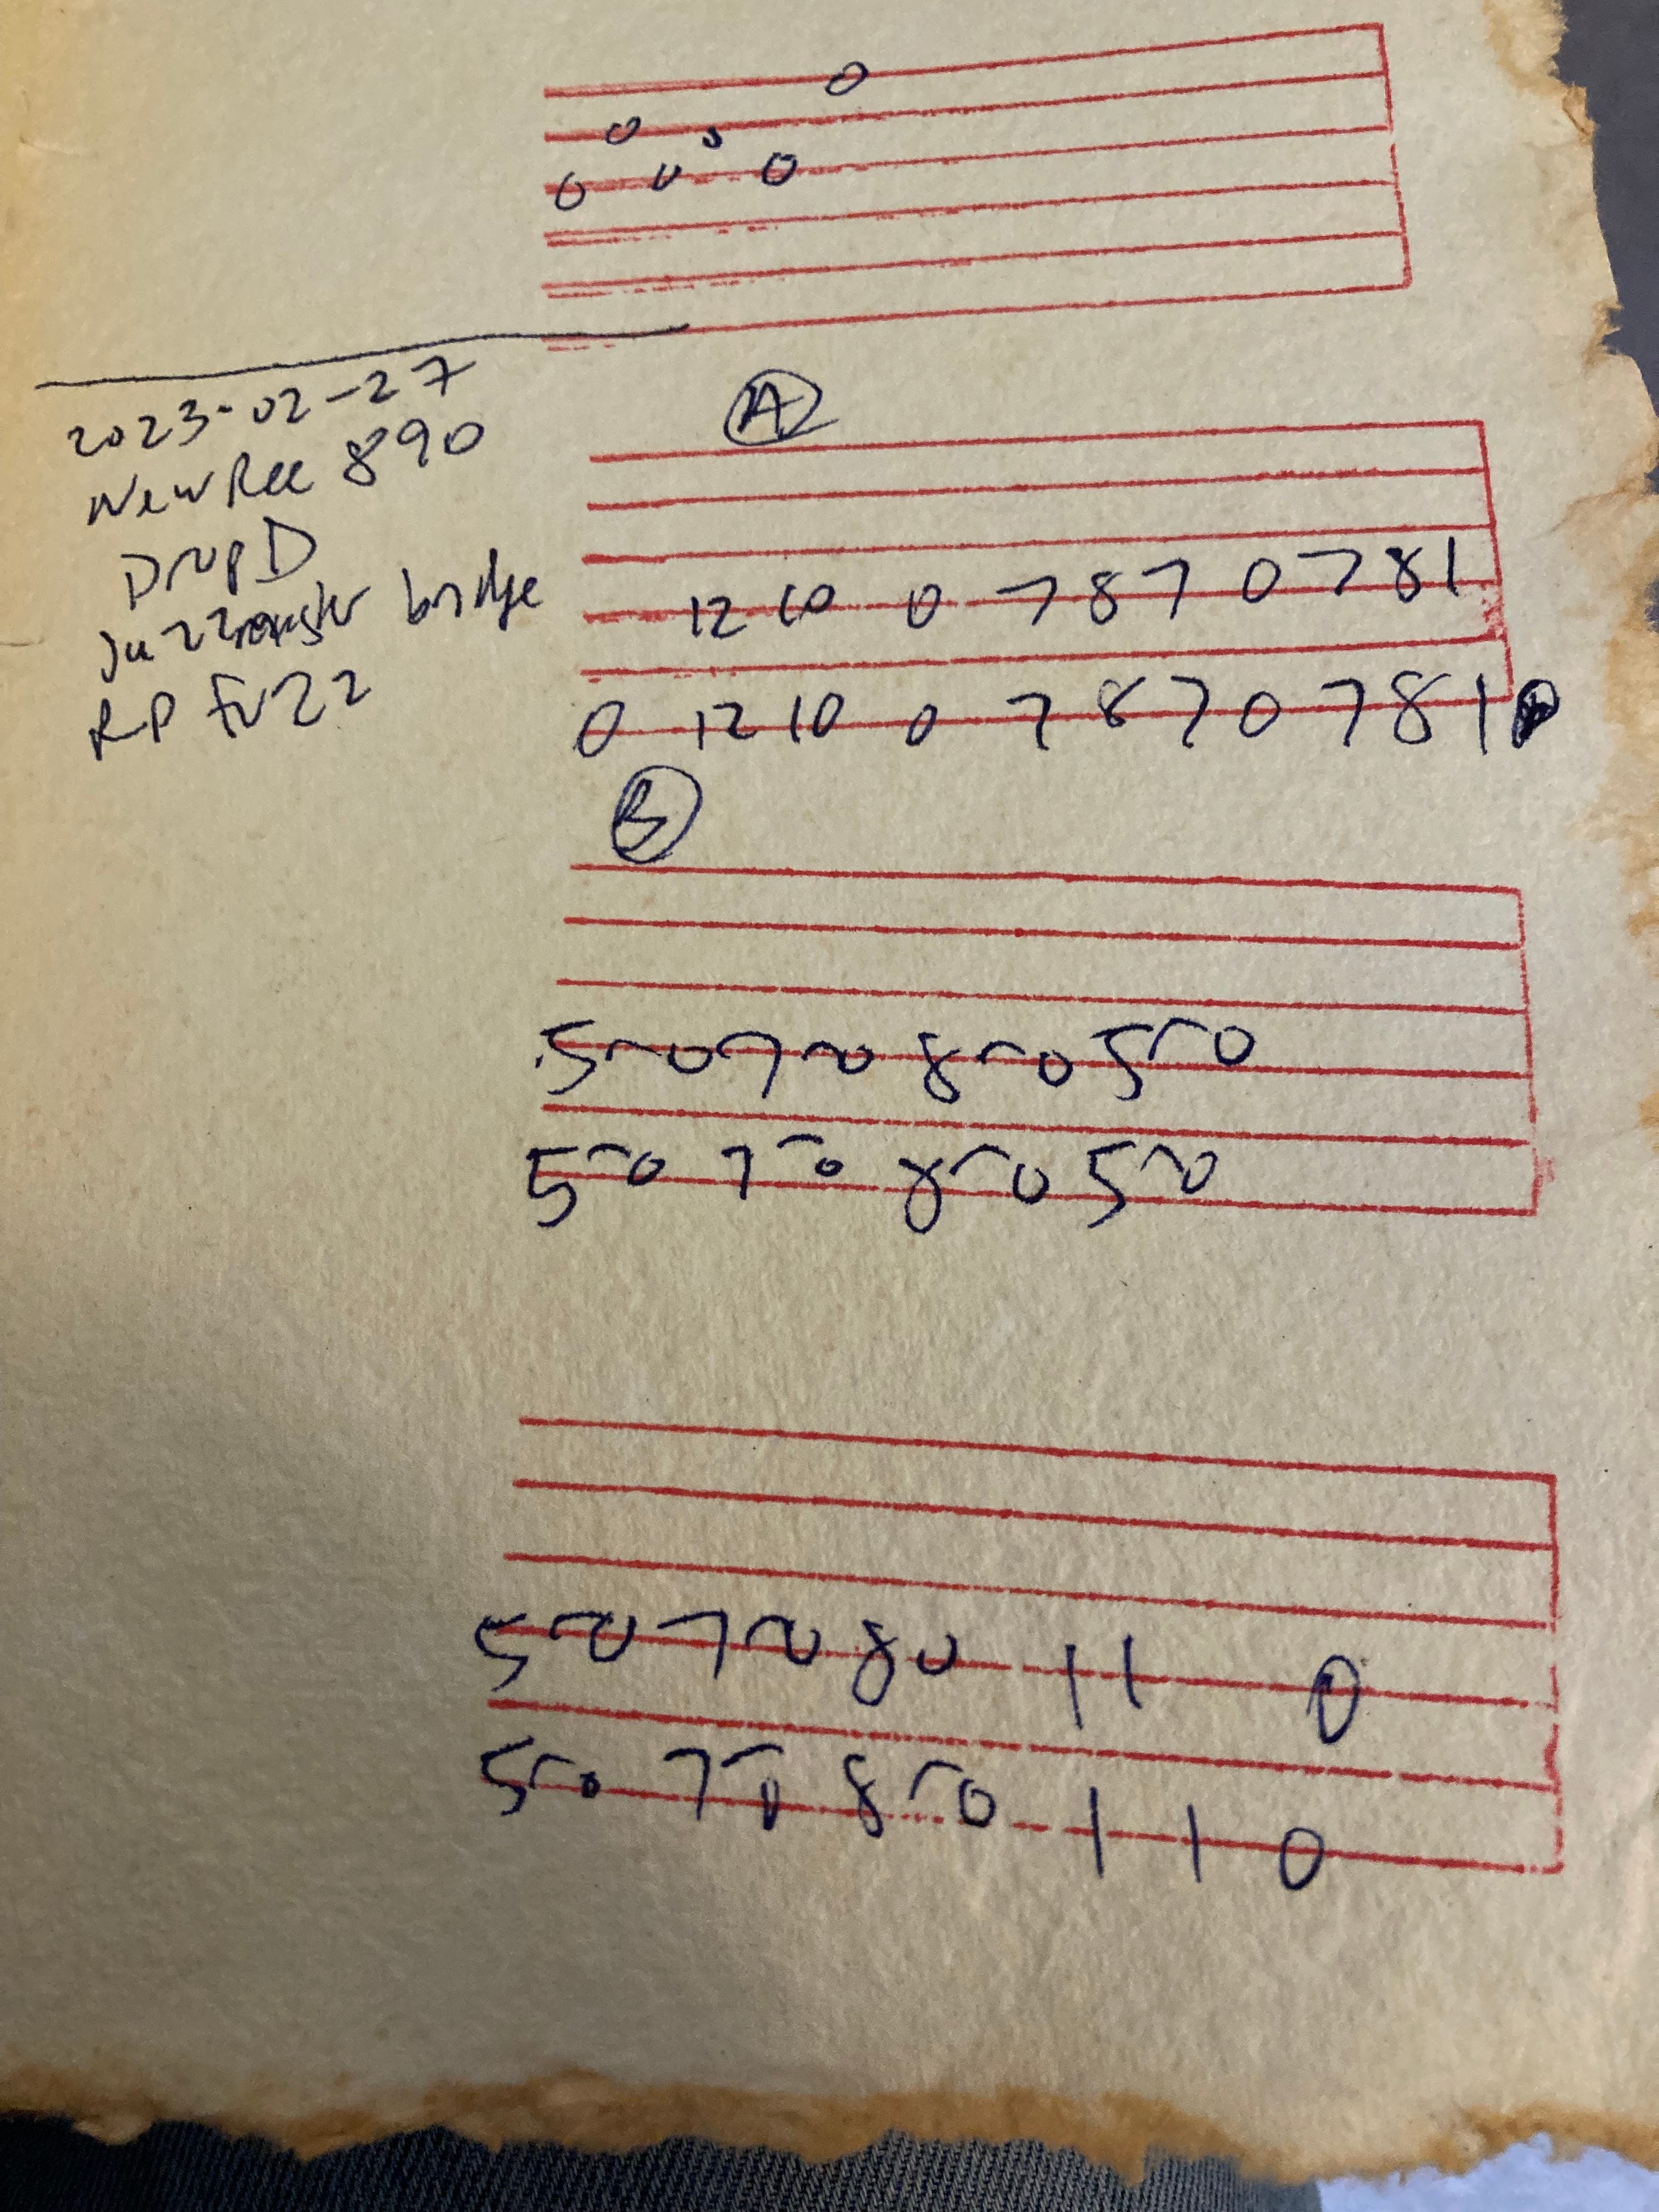 0
0 5
0 0 0
2023-02-27
New Rec 890
Drop D
Jazzmaster bridge
RP Fuzz
A
12 10 0 7 8 7 0 7 8 1
0 12 10 0 7 8 7 0 7 8 1
B
5 0 7 0 8 0 5 0
5 0 7 0 8 0 5 0
5 0 7 0 8 0 1 1 0
5 0 7 0 8 0 1 1 0